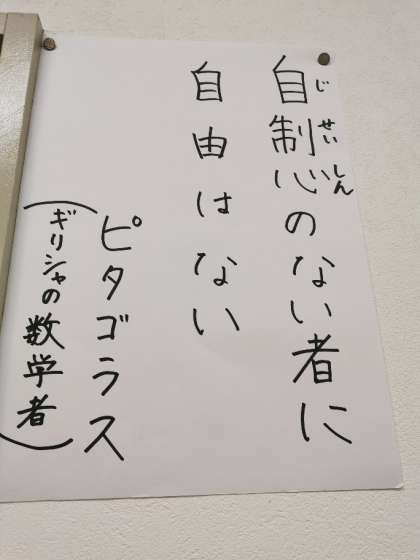 自制心のない者に
じせいしん
自由はない
ピタゴラス
(ギリシャの数学者)